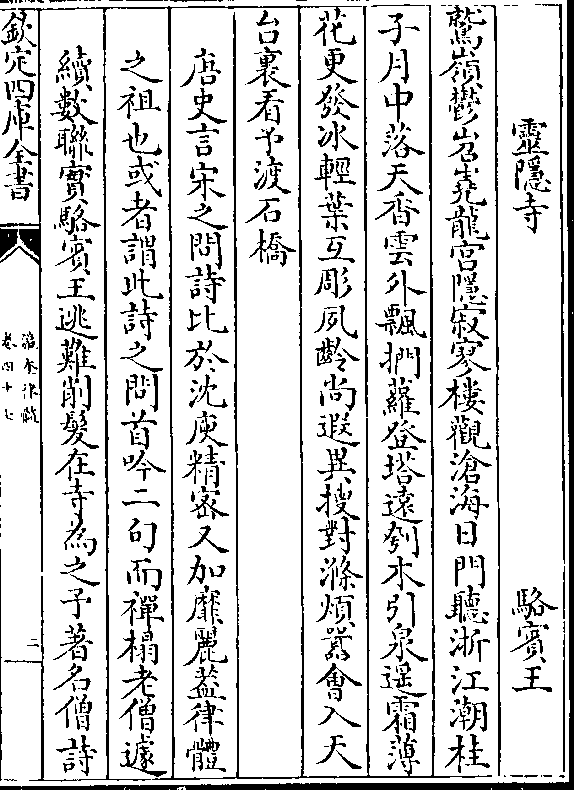 靈隱寺　駱賓王
鷲嶺鬱岧嶤龍宮隱寂寥樓觀滄海日門聽浙江潮桂
子月中落天香雲外飄捫蘿登塔遠刳木引泉遥霜薄
花更發冰輕葉互彫夙齡尚遐異搜對滌煩囂會入天
台裏看予渡石橋
唐史言宋之問詩比於沈庾精密又加靡麗葢律體
之祖也或者謂此詩之問首吟二句而禪榻老僧遽
續數聯實駱賓王逃難削髮在寺為之予著名僧詩
欽定四庫全書
瀛奎律髓
卷四十七
二